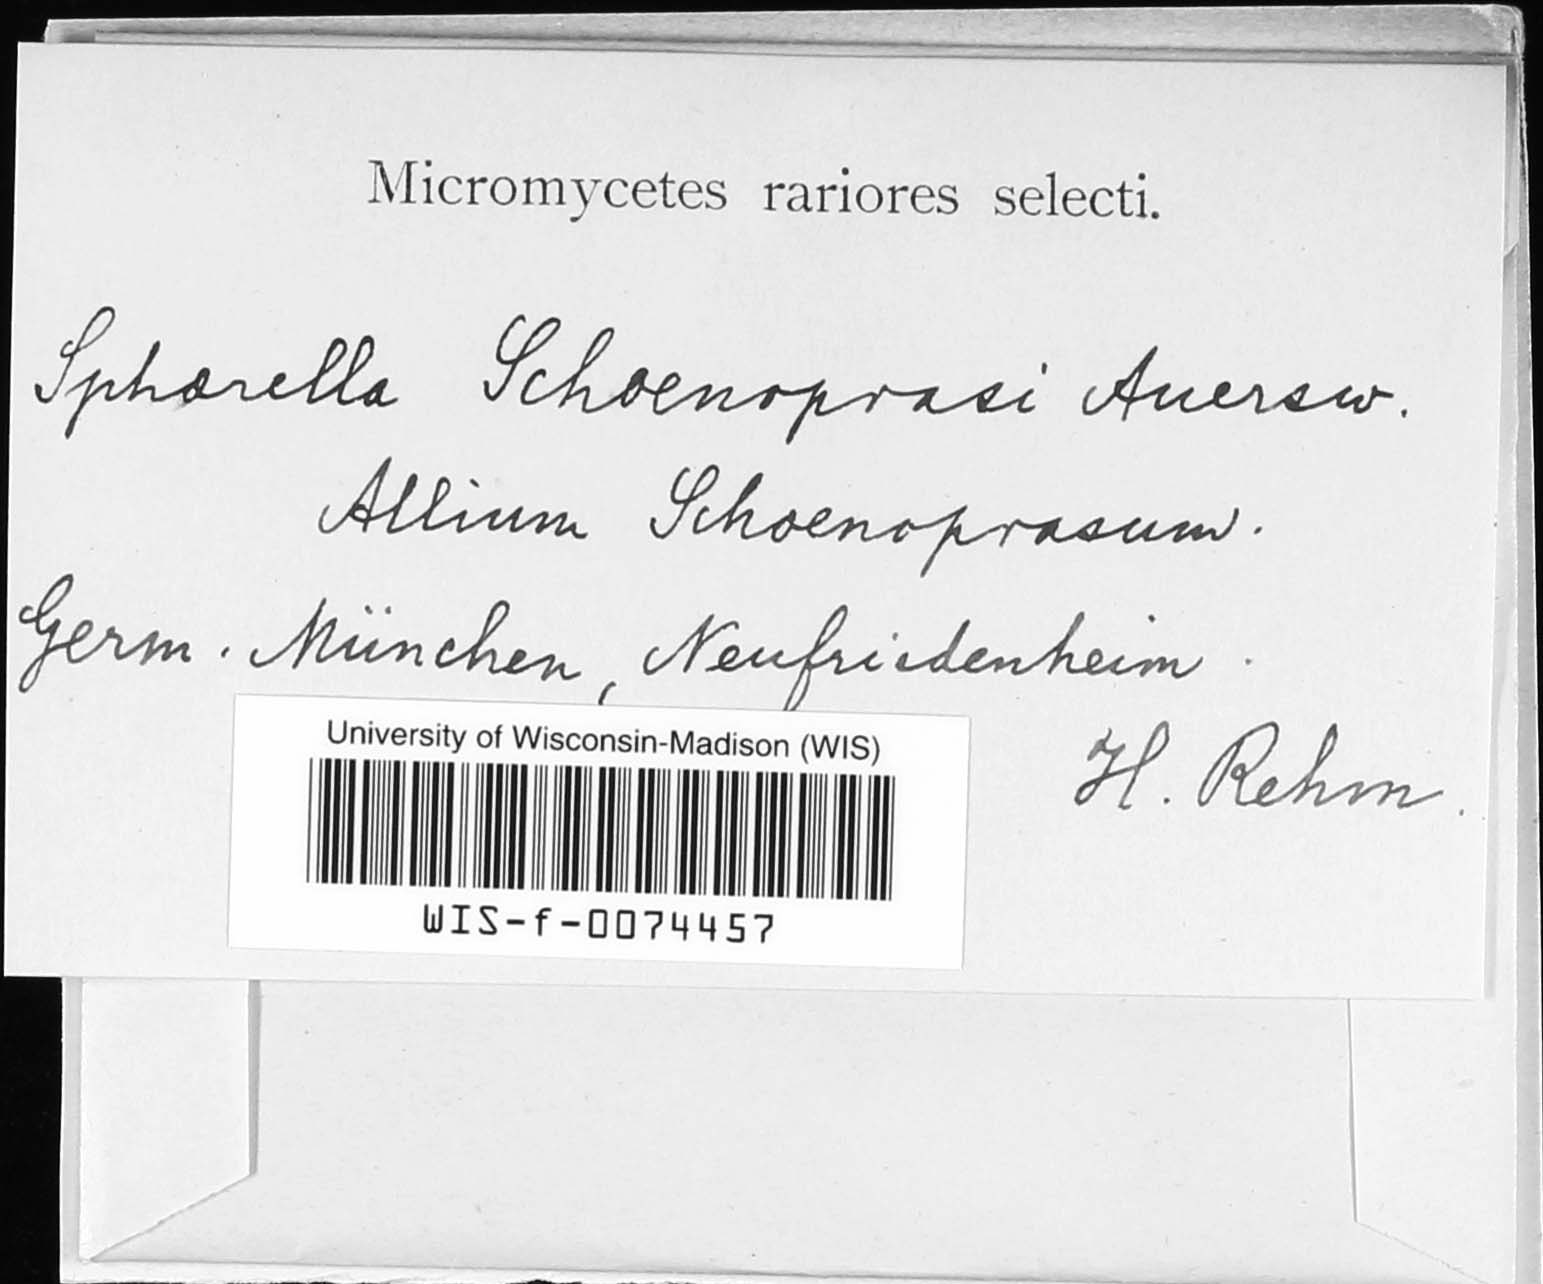 Micromycetes rariores selecti.
Sphærella Schoenoprasi Auersw.
Allium Schoenoprasum.
Germ. München, Neufriedenheim.
H. Rehm.
University of Wisconsin-Madison (WIS)
WIS-f-0074457